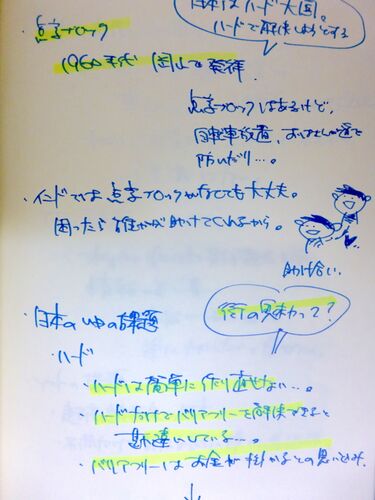 日本はハード大国。
ハードで解決しようとする
・点字ブロック
1960年代 岡山で発祥.
点字ブロックはあるけど、
自転車放置、おじさんが道を
防いだり…。
・インドでは点字ブロックがなくても大丈夫。
困ったら誰かが助けてくれるから。
助け合い.
街の魅力って?
・日本の 課題
・ハード
・ハードは簡単に作り直せない…。
・ハードだけでバリアフリーを解決できると
勘違いしている…。
・バリアフリーはお金が掛かるとの思い込み.
↓